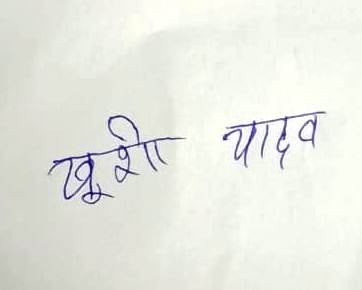 खूशी यादव